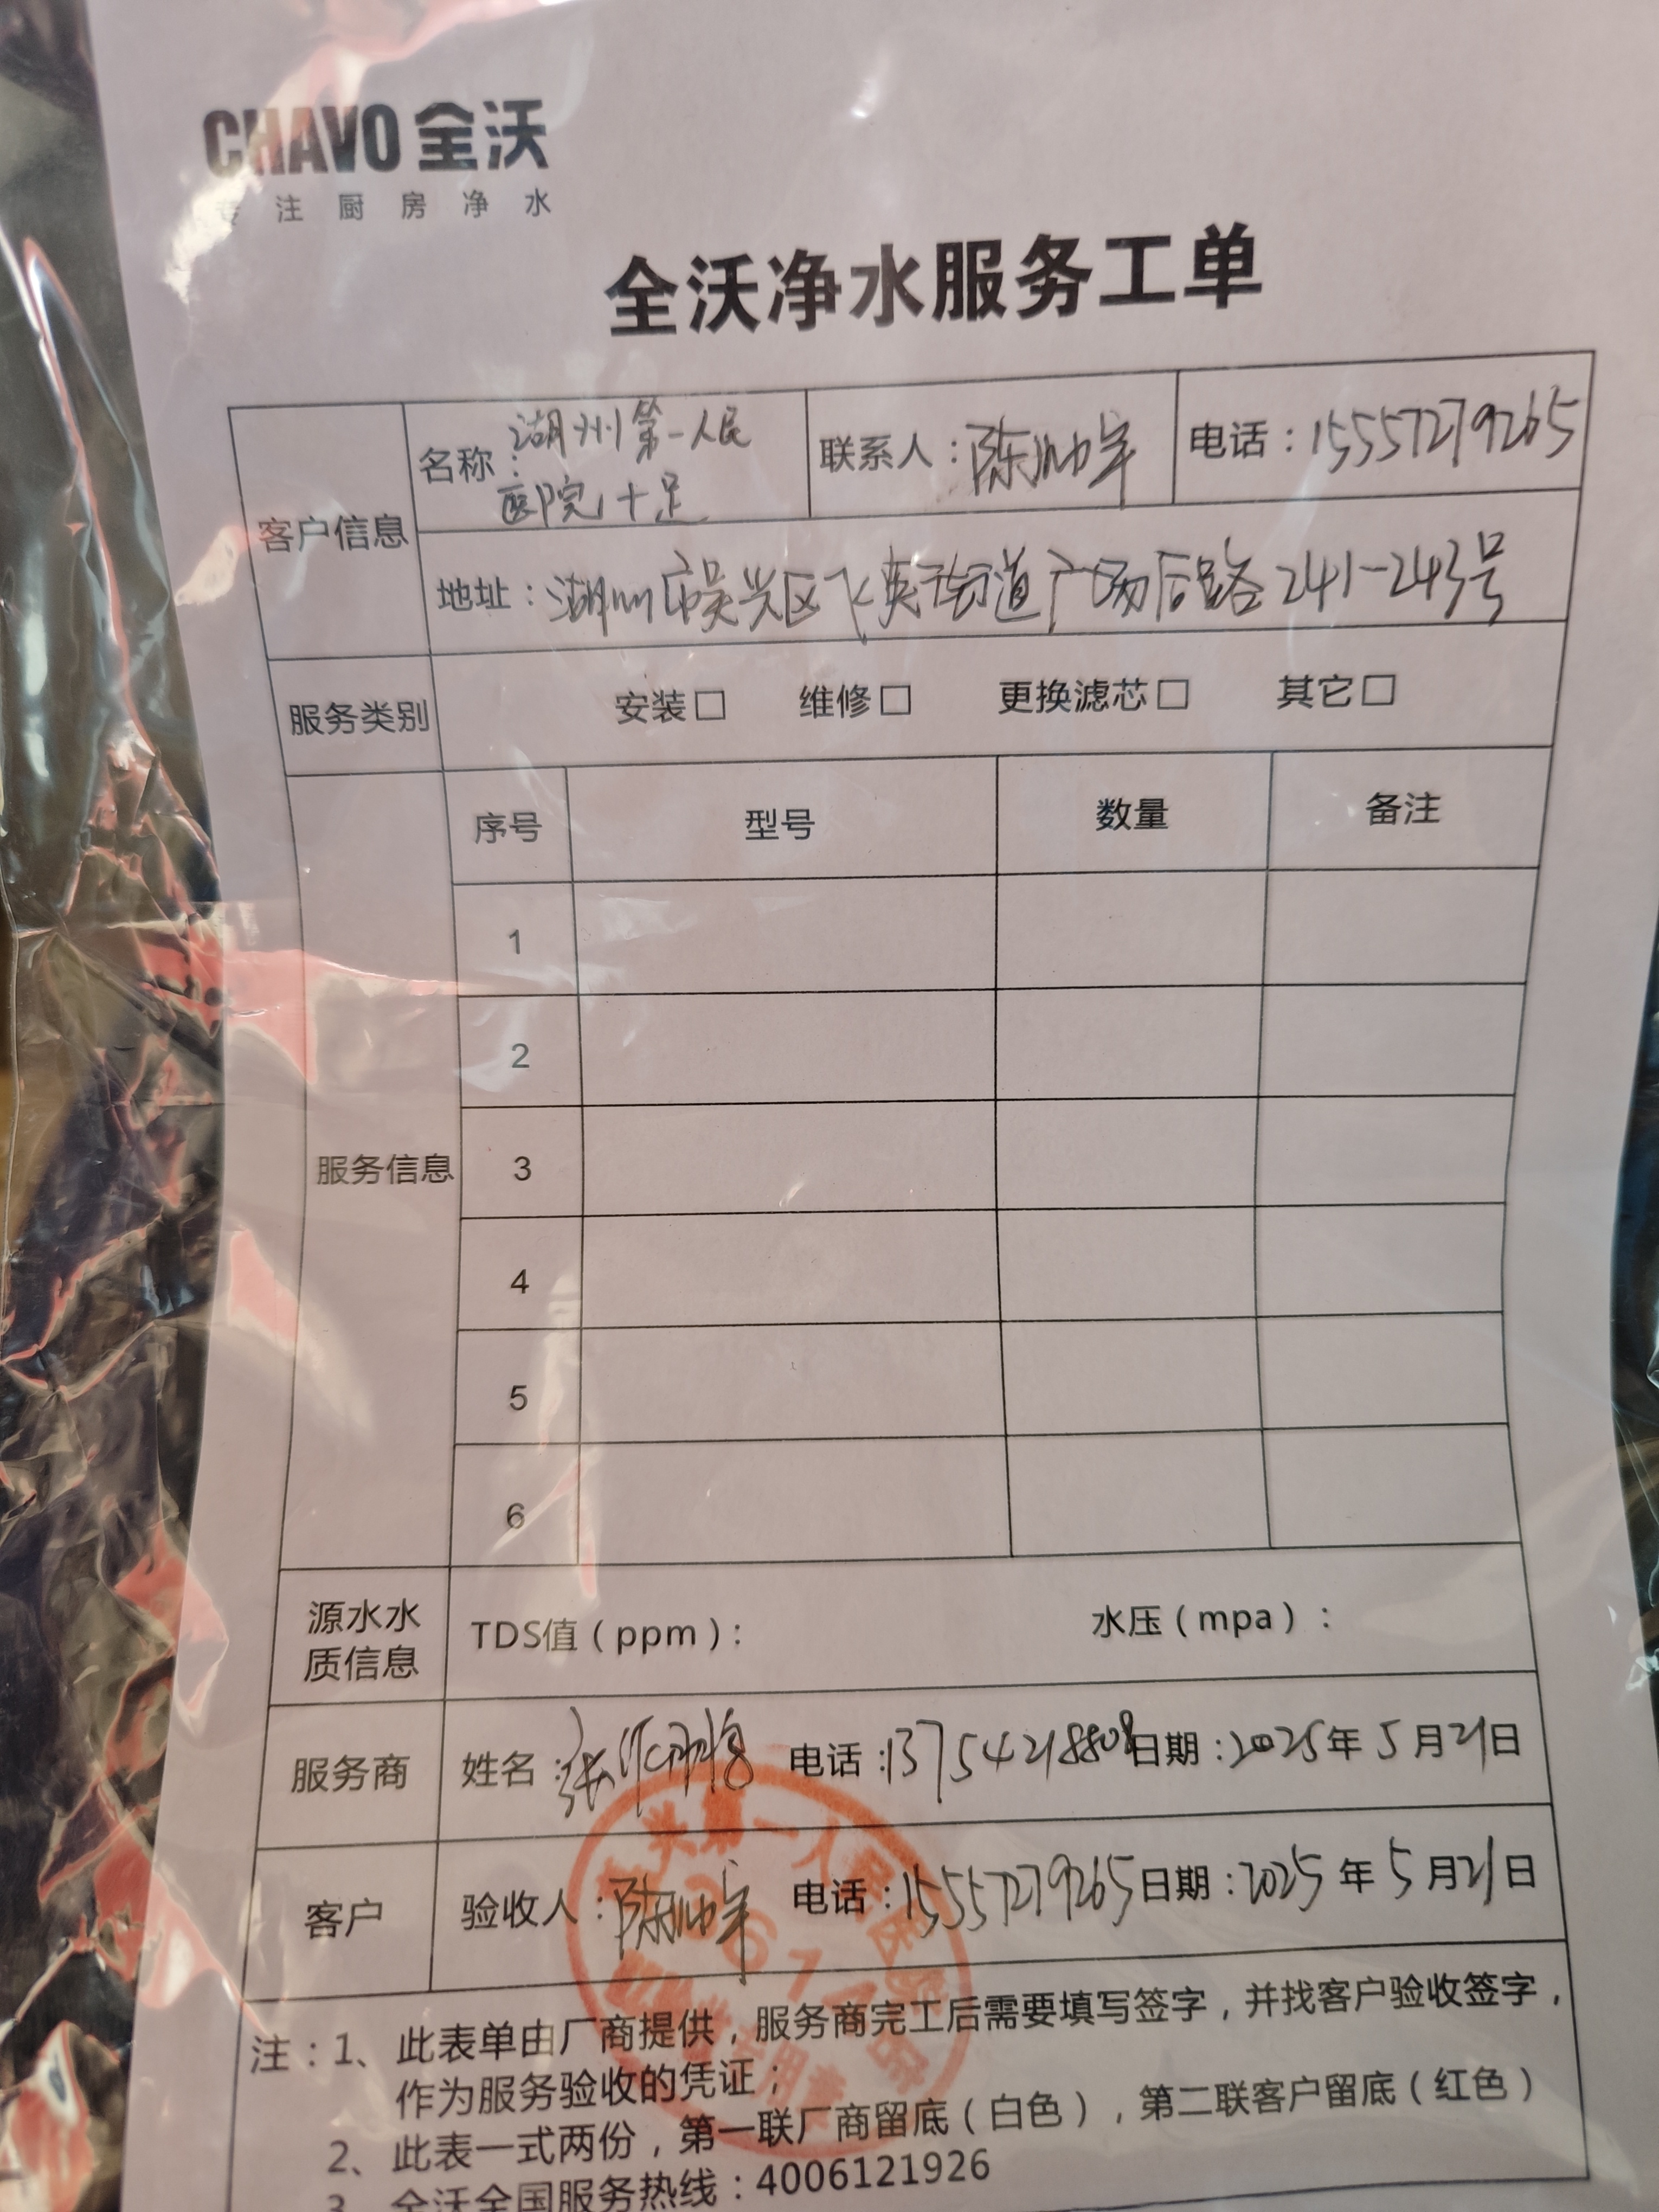 CHAVO 全沃
专注厨房净水
全沃净水服务工单
客户信息
名称：湖州第一人民
医院十足
联系人：陈帅宇
电话：15557279265
地址：湖州市吴兴区飞英街道广场后路241-243号
服务类别
安装□ 维修□ 更换滤芯□ 其它□
服务信息
序号 型号 数量 备注
1
2
3
4
5
6
源水水
质信息
TDS值（ppm）： 水压（mpa）：
服务商 姓名：张 电话：13754218808 日期：2025年5月21日
客户 验收人：陈帅宇 电话：15557279265 日期：2025年5月21日
第一人民医院
注：1、此表单由厂商提供，服务商完工后需要填写签字，并找客户验收签字，
作为服务验收的凭证；
2、此表一式两份，第一联厂商留底（白色），第二联客户留底（红色）
3、全沃全国服务热线：4006121926